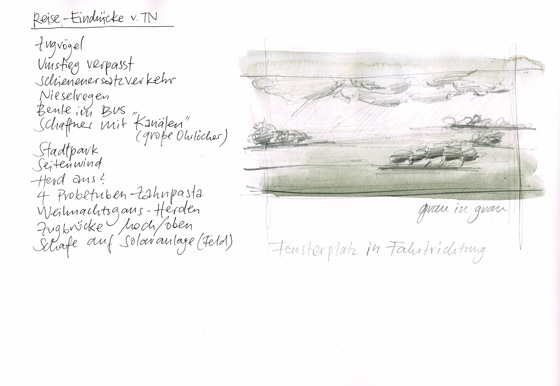 Reise-Eindrücke v. TN
Zugvögel
Umstieg verpasst
Schienenersatzverkehr
Nieselregen
Beute im Bus
Schaffner mit "Kanälen"
(große Ohrlöcher)
Stadtpark
Seitenwind
Herd aus?
4 Probetuben-Zahnpasta
Weihnachtsgans-Herden
Zugbrücke hoch/oben
Schafe auf Solaranlage (Feld)
grau in grau
Fensterplatz in Fahrtrichtung